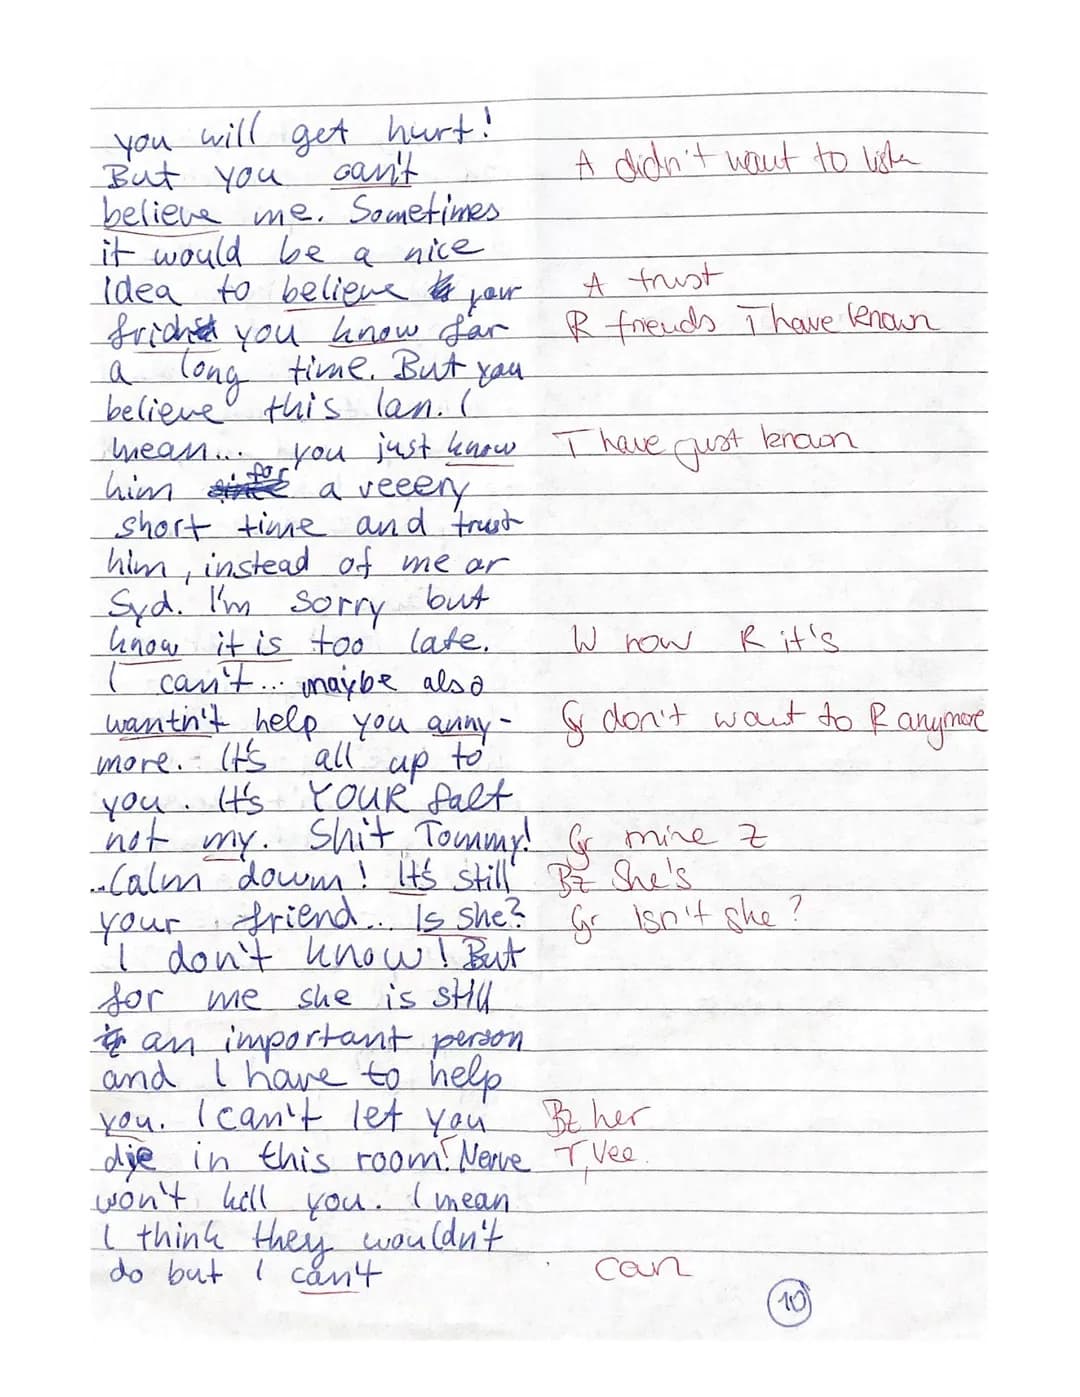 you will get hurt!
But you can't
A didn't want to listen
believe me. Sometimes
it would be a nice
idea to believe your
A trust
you know for
R friends T have known
a long time. But you
believe this Ian. I
mean... you just know
T have just known
him for a veeery
short time and trust
him, instead of me or
Syd. I'm sorry but
know it is too late.
W now R it's
I can't... maybe also
wantn't help you anny-
Gr don't want to R anymore
more. It's all up to
you. It's YOUR falt
not my. Shit Tommy!
Gr mine Z
...Calm dowm! It's still
Bz She's
your friend... Is she?
Gr Isn't she?
I don't know! But
for me she is still
an important person
and I have to help
you. I can't let you
Bz her
die in this room! Nerve
T, Vee.
won't kill you. I mean
I think they wouldn't
do but I can't
can
10